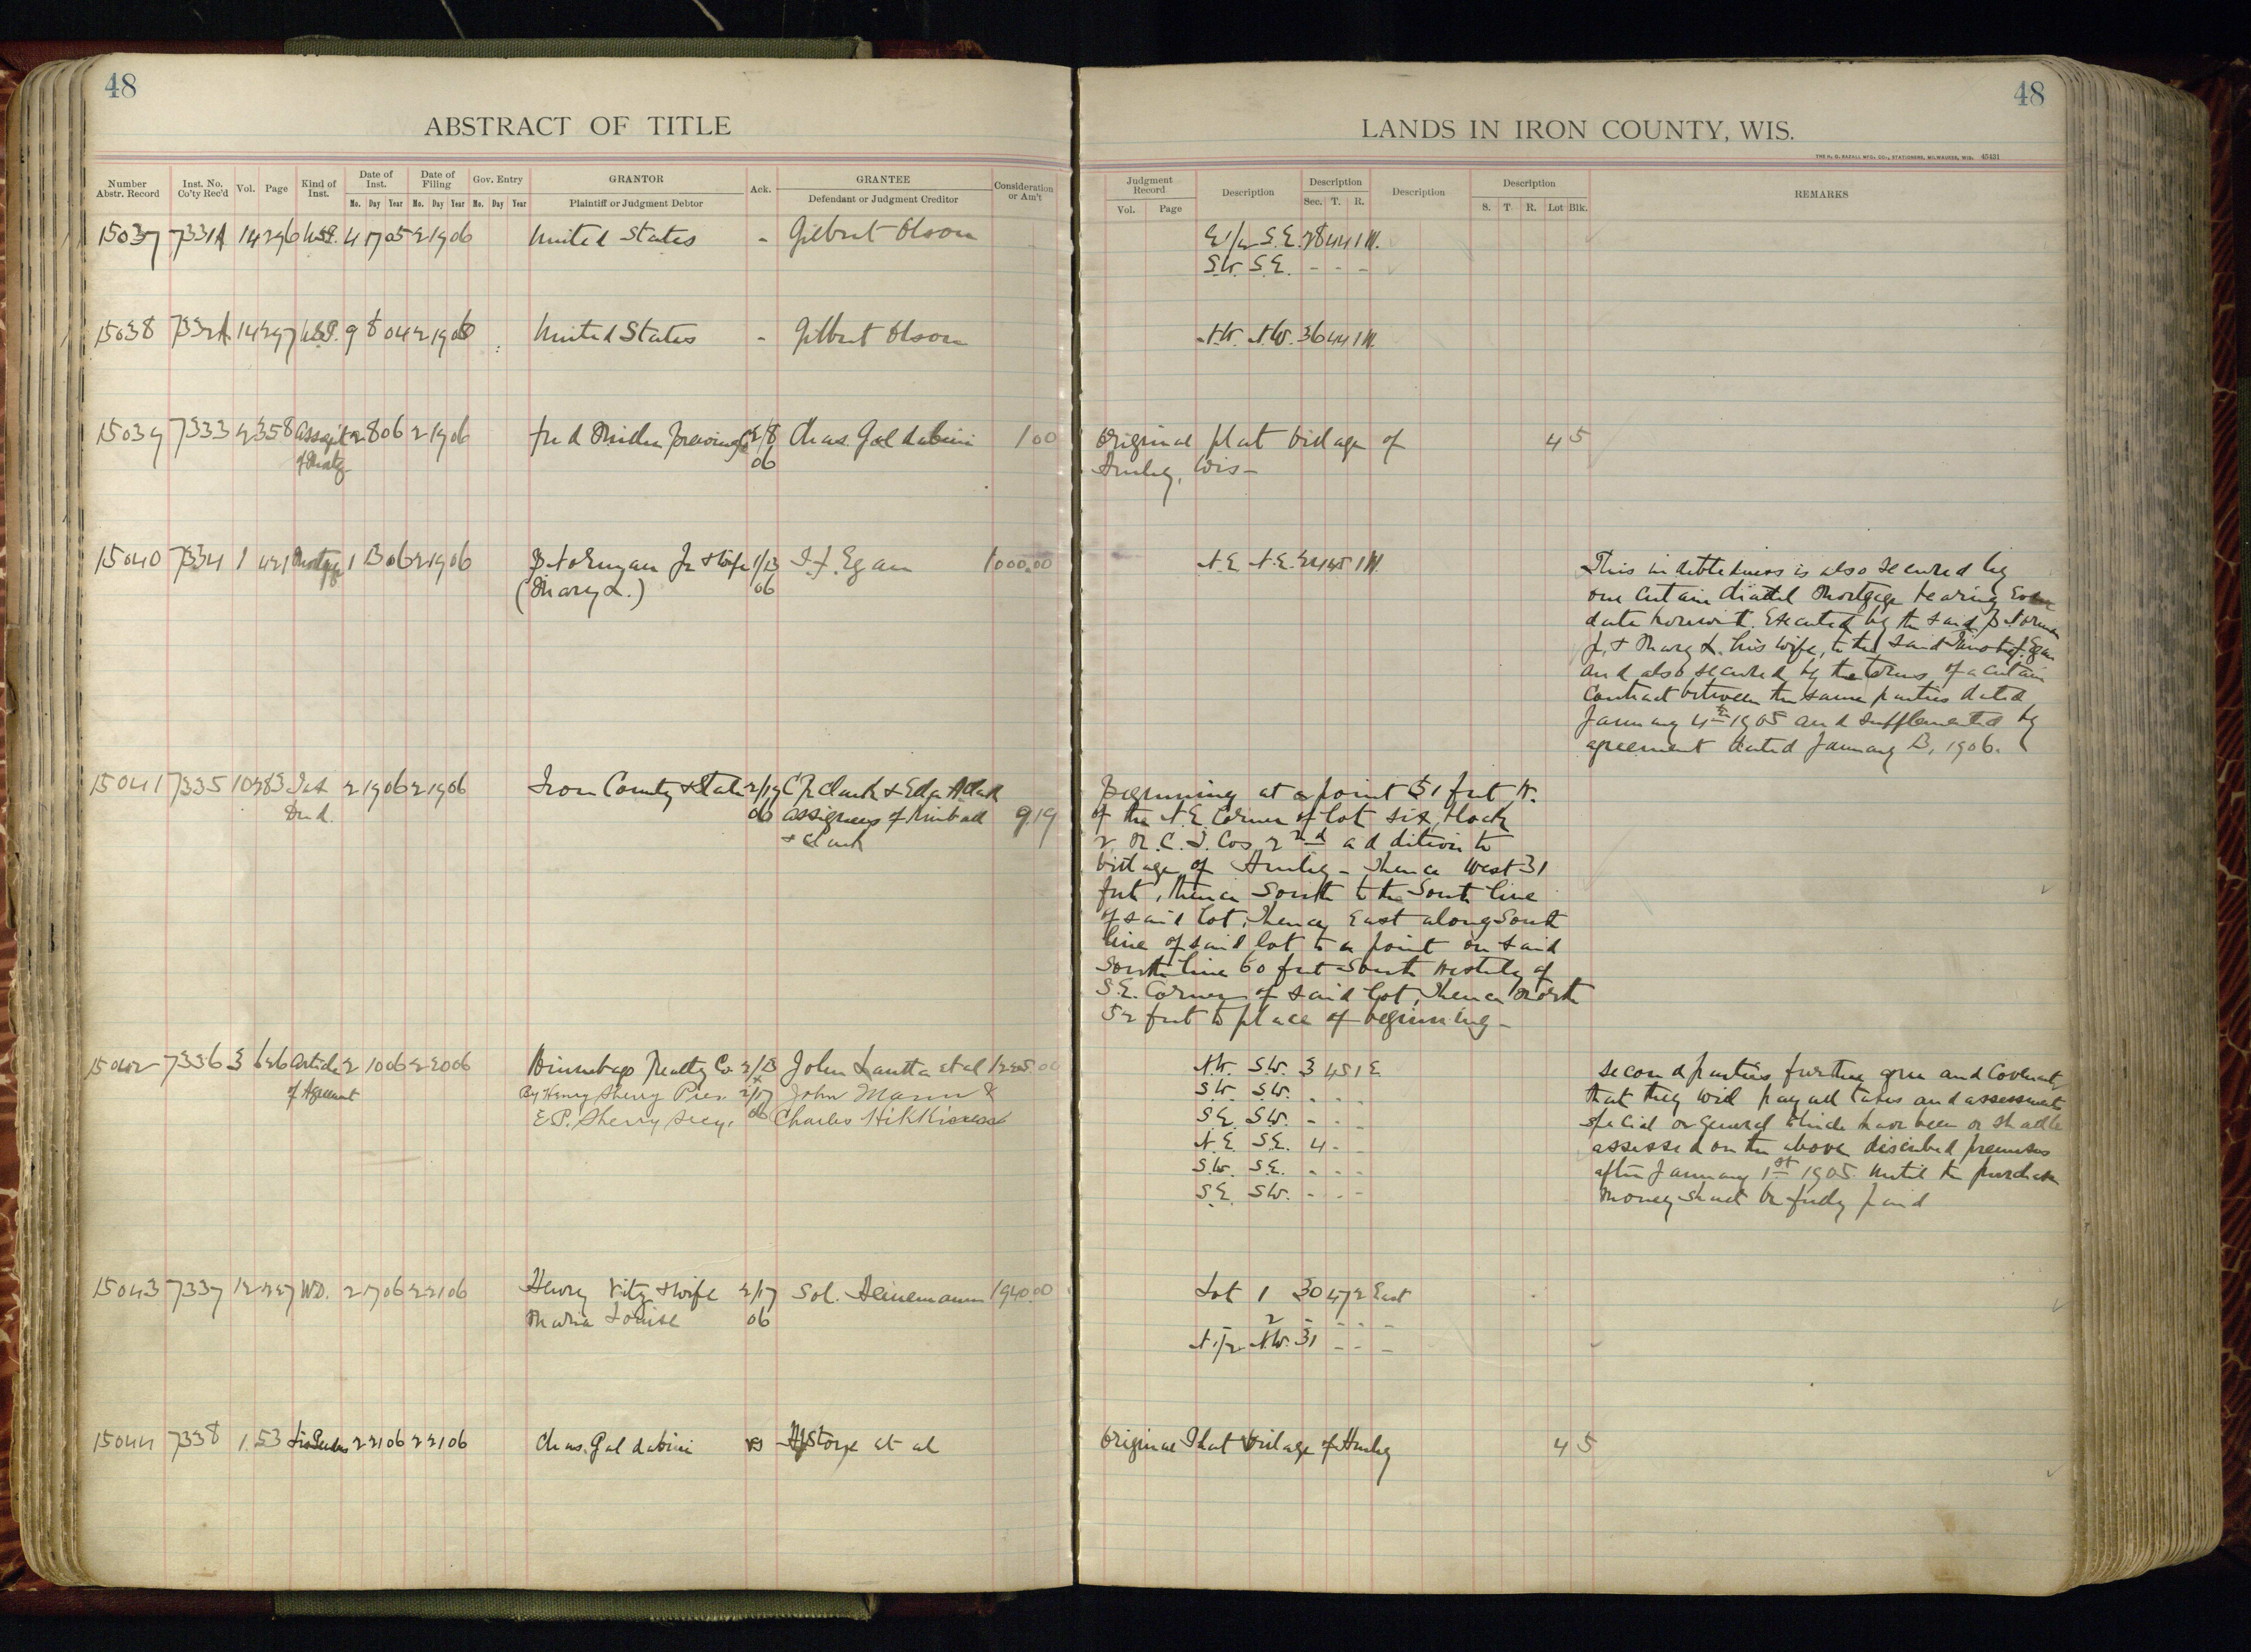 48
ABSTRACT OF TITLE
Number Abstr. Record
Inst. No. Co'ty Rec'd
Vol.
Page
Kind of Inst.
Date of Inst.
Date of Filing
Gov. Entry
GRANTOR
Ack.
GRANTEE
Consideration or Am't
Mo. Day Year Mo. Day Year Mo. Day Year
Plaintiff or Judgment Debtor
Defendant or Judgment Creditor
15037 7331A 14 296 U.S.P. 4 17 05 2 19 06 United States - Gilbert Olson
15038 7332A 14 297 U.S.P. 9 8 04 2 19 06 United States - Gilbert Olson
15039 7333 2 358 Assg't 2 8 06 2 19 06 Fred 2/8 Chas. Galdabini 1 00
of Mortg. 06
15040 7334 1 421 Mortgage 1 13 06 2 19 06 Jr & Wife 1/13 T. F. Egan 1000.00
(Mary L.) 06
15041 7335 10 383 Tax 2 19 06 2 19 06 Iron County & State 2/19 &
Deed. 06 assignees of Kimball 9 19
& Clark
15042 7336 3 626 Article 2 10 06 2 20 06 Winnebago Realty Co 2/13 John Lautta et al
of Agreement By Henry Sherry Pres. 2/17 John Mann &
E.P. Sherry Secy. 06 Charles
15043 7337 12 227 W.D. 2 17 06 2 21 06 Henry Vitz & wife 2/17 Sol. Heinemann 1940.00
Maria Louise 06
15044 7338 1 53 Lis Pendens 2 21 06 2 21 06 Chas. Galdabini vs et al
48
LANDS IN IRON COUNTY, WIS.
THE H. G. RAZALL MFG. CO., STATIONERS, MILWAUKEE, WIS. 40431
Judgment Record
Description
Description
Description
Description
REMARKS
Vol. Page
Sec. T. R.
S. T. R. Lot Blk.
E 1/2 S.E. 28 44 1 W.
S.W. S.E. - - -
N.W. N.W. 36 44 1 W.
Original plat Village of 4 5
Hurley, Wis -
N.E. N.E. 24 45 1 W.
This indebtedness is also secured by
one certain chattel Mortgage bearing even
date herewith. Executed by the said
Jr. & Mary L. his wife, to the said Egan
and also secured by the terms of a certain
Contract between the same parties dated
January 4th 1905 and supplemented by
agreement dated January 13, 1906.
Beginning at a point 31 feet W.
of the N.E. Corner of lot six, block
2, N.C.I. Cos 2nd addition to
Village of Hurley - Thence West 31
feet, thence South to the South line
of said lot, thence East along South
line of said lot to a point on said
South line 60 feet South Westerly of
S.E. Corner of said lot, thence North
52 feet to place of beginning -
N.W. S.W. 3 45 1 E.
S.W. S.W. - - -
S.E. S.W. - - -
N.E. S.E. 4 - -
S.W. S.E. - - -
S.E. S.W. - - -
Second parties further agree and Covenant
that they will pay all taxes and assessments
special or general which have been or shall be
assessed on the above described premises
after January 1st 1905 until the purchase
money shall be fully paid
Lot 1 30 47 2 East
2 - - - -
N 1/2 N.W. 31 - - -
Original Plat Village of Hurley 4 5